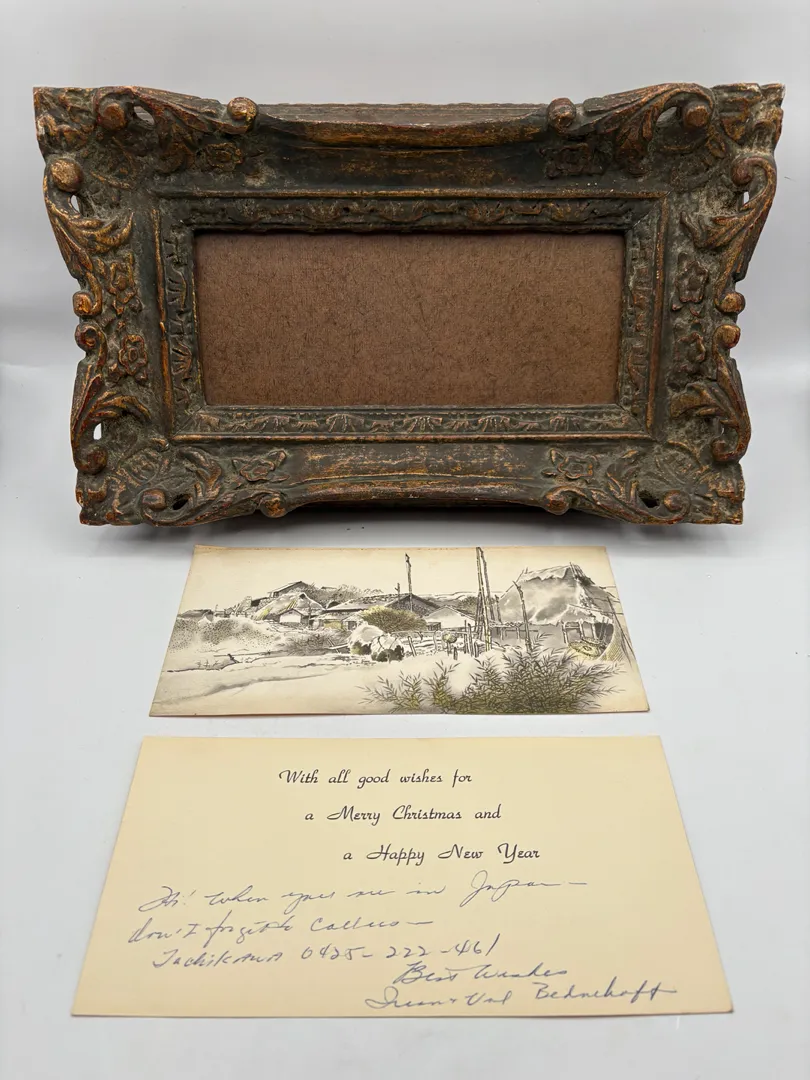 With all good wishes for
a Merry Christmas and
a Happy New Year
Hi! When you are in Japan —
don't forget to call us —
Tachikawa 0425-222-461
Best Wishes
Val